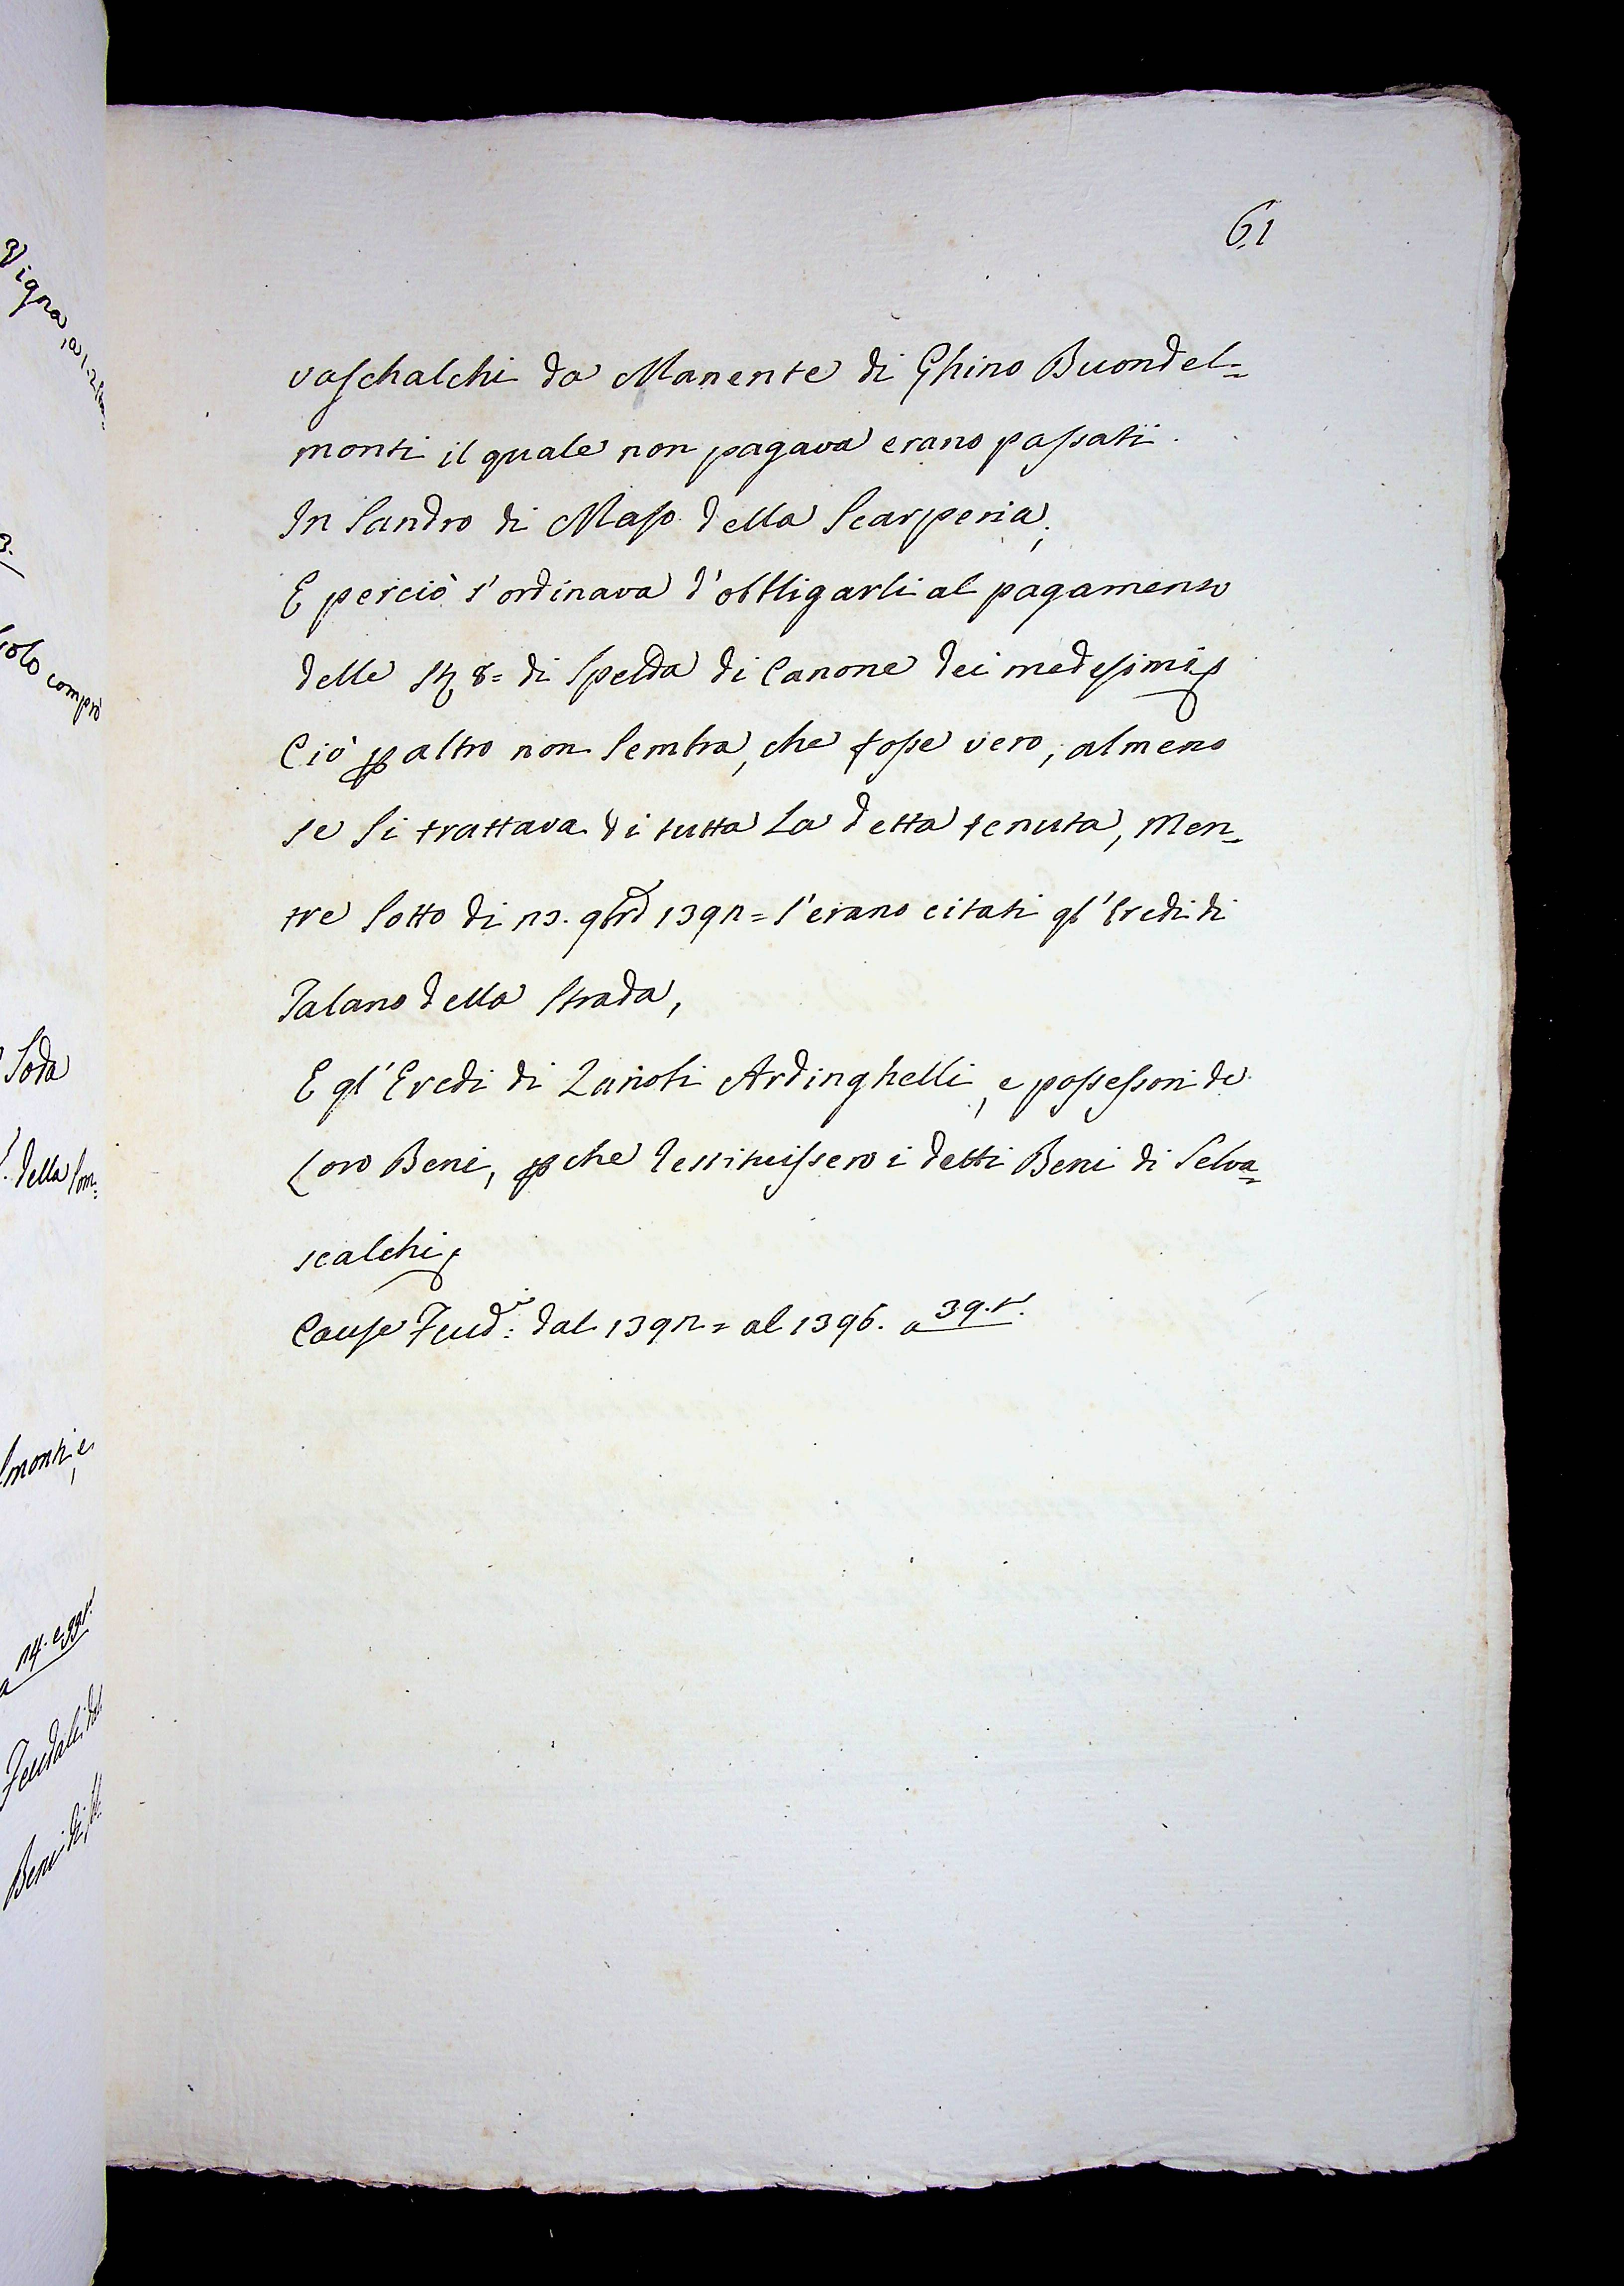 61
vaschalchi da Manente di Ghino Buondel=
monti il quale non pagava erano passati.
In Sandro di Maso della Scarperia;
E perciò s'ordinava d'obbligarli al pagamento
delle 8= di Spelda di Canone dei medesimi
Ciò p altro non Sembra, che fosse vero, almeno
se Si trattava di tutta La detta tenuta, Men=
tre Sotto di 23. 9bre 1392= s'erano citati gl'Eredi di
Talano della Strada,
E gl'Eredi di Zanobi Ardinghelli, e possessori de
Loro Beni, p che restituissero i detti Beni di Selva=
scalchi,
Cause Feud:i dal 1392= al 1396. a 39.t.
Vigna,
3.
solo comprò
Soda
della Som:
lmonti e
a 24. e 99t.
Feudali dal
Beni di